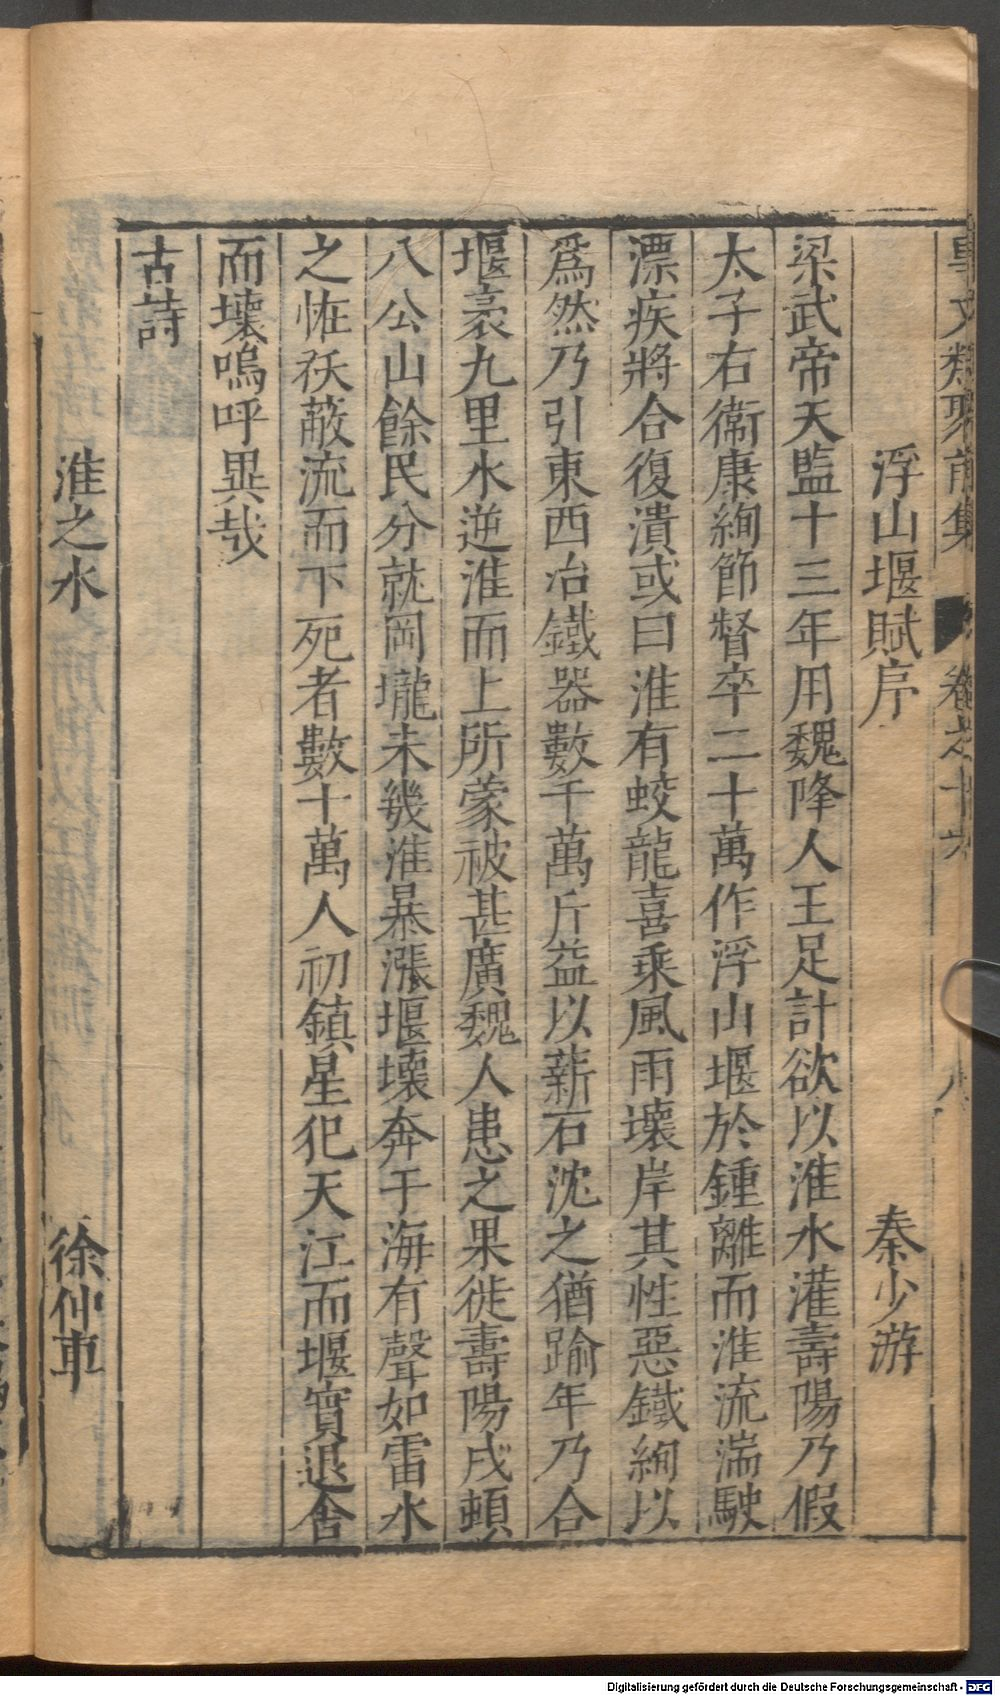 事文類聚前集 卷之十六 八
浮山堰賦序 秦少游
梁武帝天監十三年用魏降人王足計欲以淮水灌壽陽乃假
太子右衞康絢節督卒二十萬作浮山堰於鍾離而淮流湍駛
漂疾將合復潰或曰淮有蛟龍喜乘風雨壞岸其性惡鐵絢以
爲然乃引東西冶鐵器數千萬斤益以薪石沈之猶踰年乃合
堰袤九里水逆淮而上所蒙被甚廣魏人患之果徙壽陽戍頓
八公山餘民分就岡壠未幾淮暴漲堰壞奔于海有聲如雷水
之恠祅蔽流而下死者數十萬人初鎮星犯天江而堰實退舍
而壞嗚呼異哉
古詩
淮之水 徐仲車
Digitalisierung gefördert durch die Deutsche Forschungsgemeinschaft - DFG